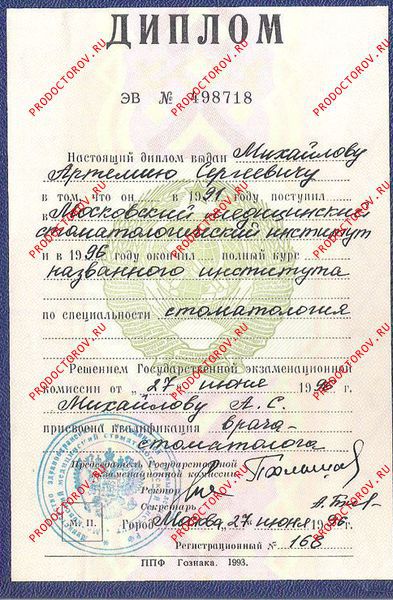 ДИПЛОМ
ЭВ № 498718
Настоящий диплом выдан Михайлову
Артемию Сергеевичу
в том, что он в 1991 году поступил
в Московский медицинский
стоматологический институт
и в 1996 году окончил полный курс
названного института
по специальности стоматология
Решением Государственной экзаменационной
комиссии от „27" июня 1996 г.
Михайлову А. С.
присвоена квалификация врача-
стоматолога
Председатель Государственной
экзаменационной комиссии
Ректор
Секретарь
М. П. Город Москва, 27 июня 1996 г.
Регистрационный № 168
ППФ Гознака. 1993.
PRODOCTOROV.RU